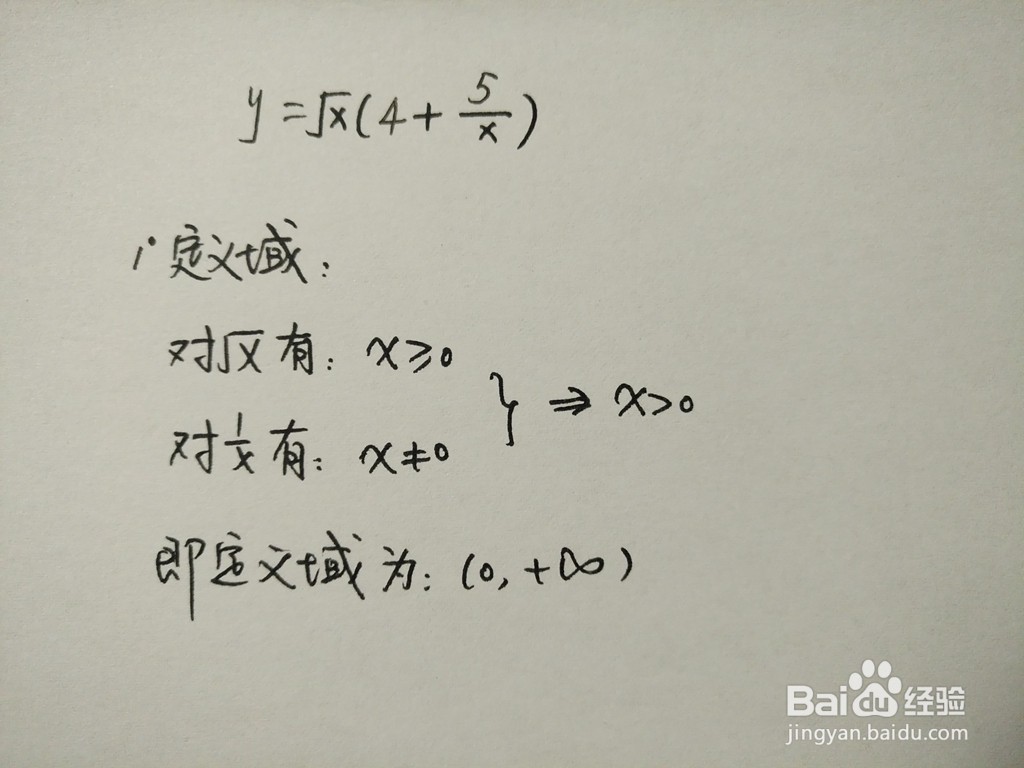 y=√x(4+5/x)
1°定义域：
对√x有：x≥0
对1/x有：x≠0
}⇒x>0
即定义域为：(0,+∞)
Baidu经验
jingyan.baidu.com